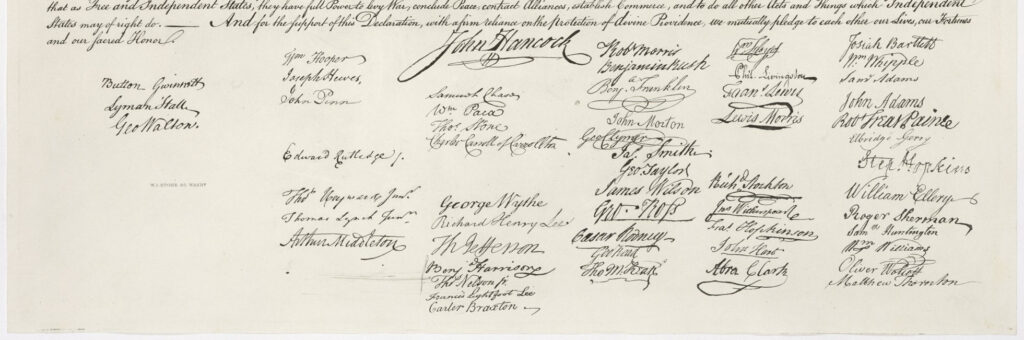 that as Free and Independent States, they have full Power to levy War, conclude Peace, contract Alliances, establish Commerce, and to do all other Acts and Things which Independent
States may of right do. — And for the support of this Declaration, with a firm reliance on the protection of divine Providence, we mutually pledge to each other our Lives, our Fortunes
and our sacred Honor.
Button Gwinnett
Lyman Hall
Geo Walton.
Wm Hooper
Joseph Hewes,
John Penn
Edward Rutledge /.
Thos Heyward Junr.
Thomas Lynch Junr.
Arthur Middleton
John Hancock
Samuel Chase
Wm Paca
Thos Stone
Charles Carroll of Carrollton
George Wythe
Richard Henry Lee
Th Jefferson
Benj Harrison
Thos Nelson jr.
Francis Lightfoot Lee
Carter Braxton
Robt Morris
Benjamin Rush
Benj. Franklin
John Morton
Geo Clymer
Jas. Smith
Geo. Taylor
James Wilson
Geo. Ross
Caesar Rodney
Geo Read
Tho M:Kean
Wm Floyd
Phil. Livingston
Frans. Lewis
Lewis Morris
Richd. Stockton
Jno Witherspoon
Fras. Hopkinson
John Hart
Abra Clark
Josiah Bartlett
Wm. Whipple
Saml Adams
John Adams
Robt Treat Paine
Elbridge Gerry
Step. Hopkins
William Ellery
Roger Sherman
Saml Huntington
Wm Williams
Oliver Wolcott
Matthew Thornton